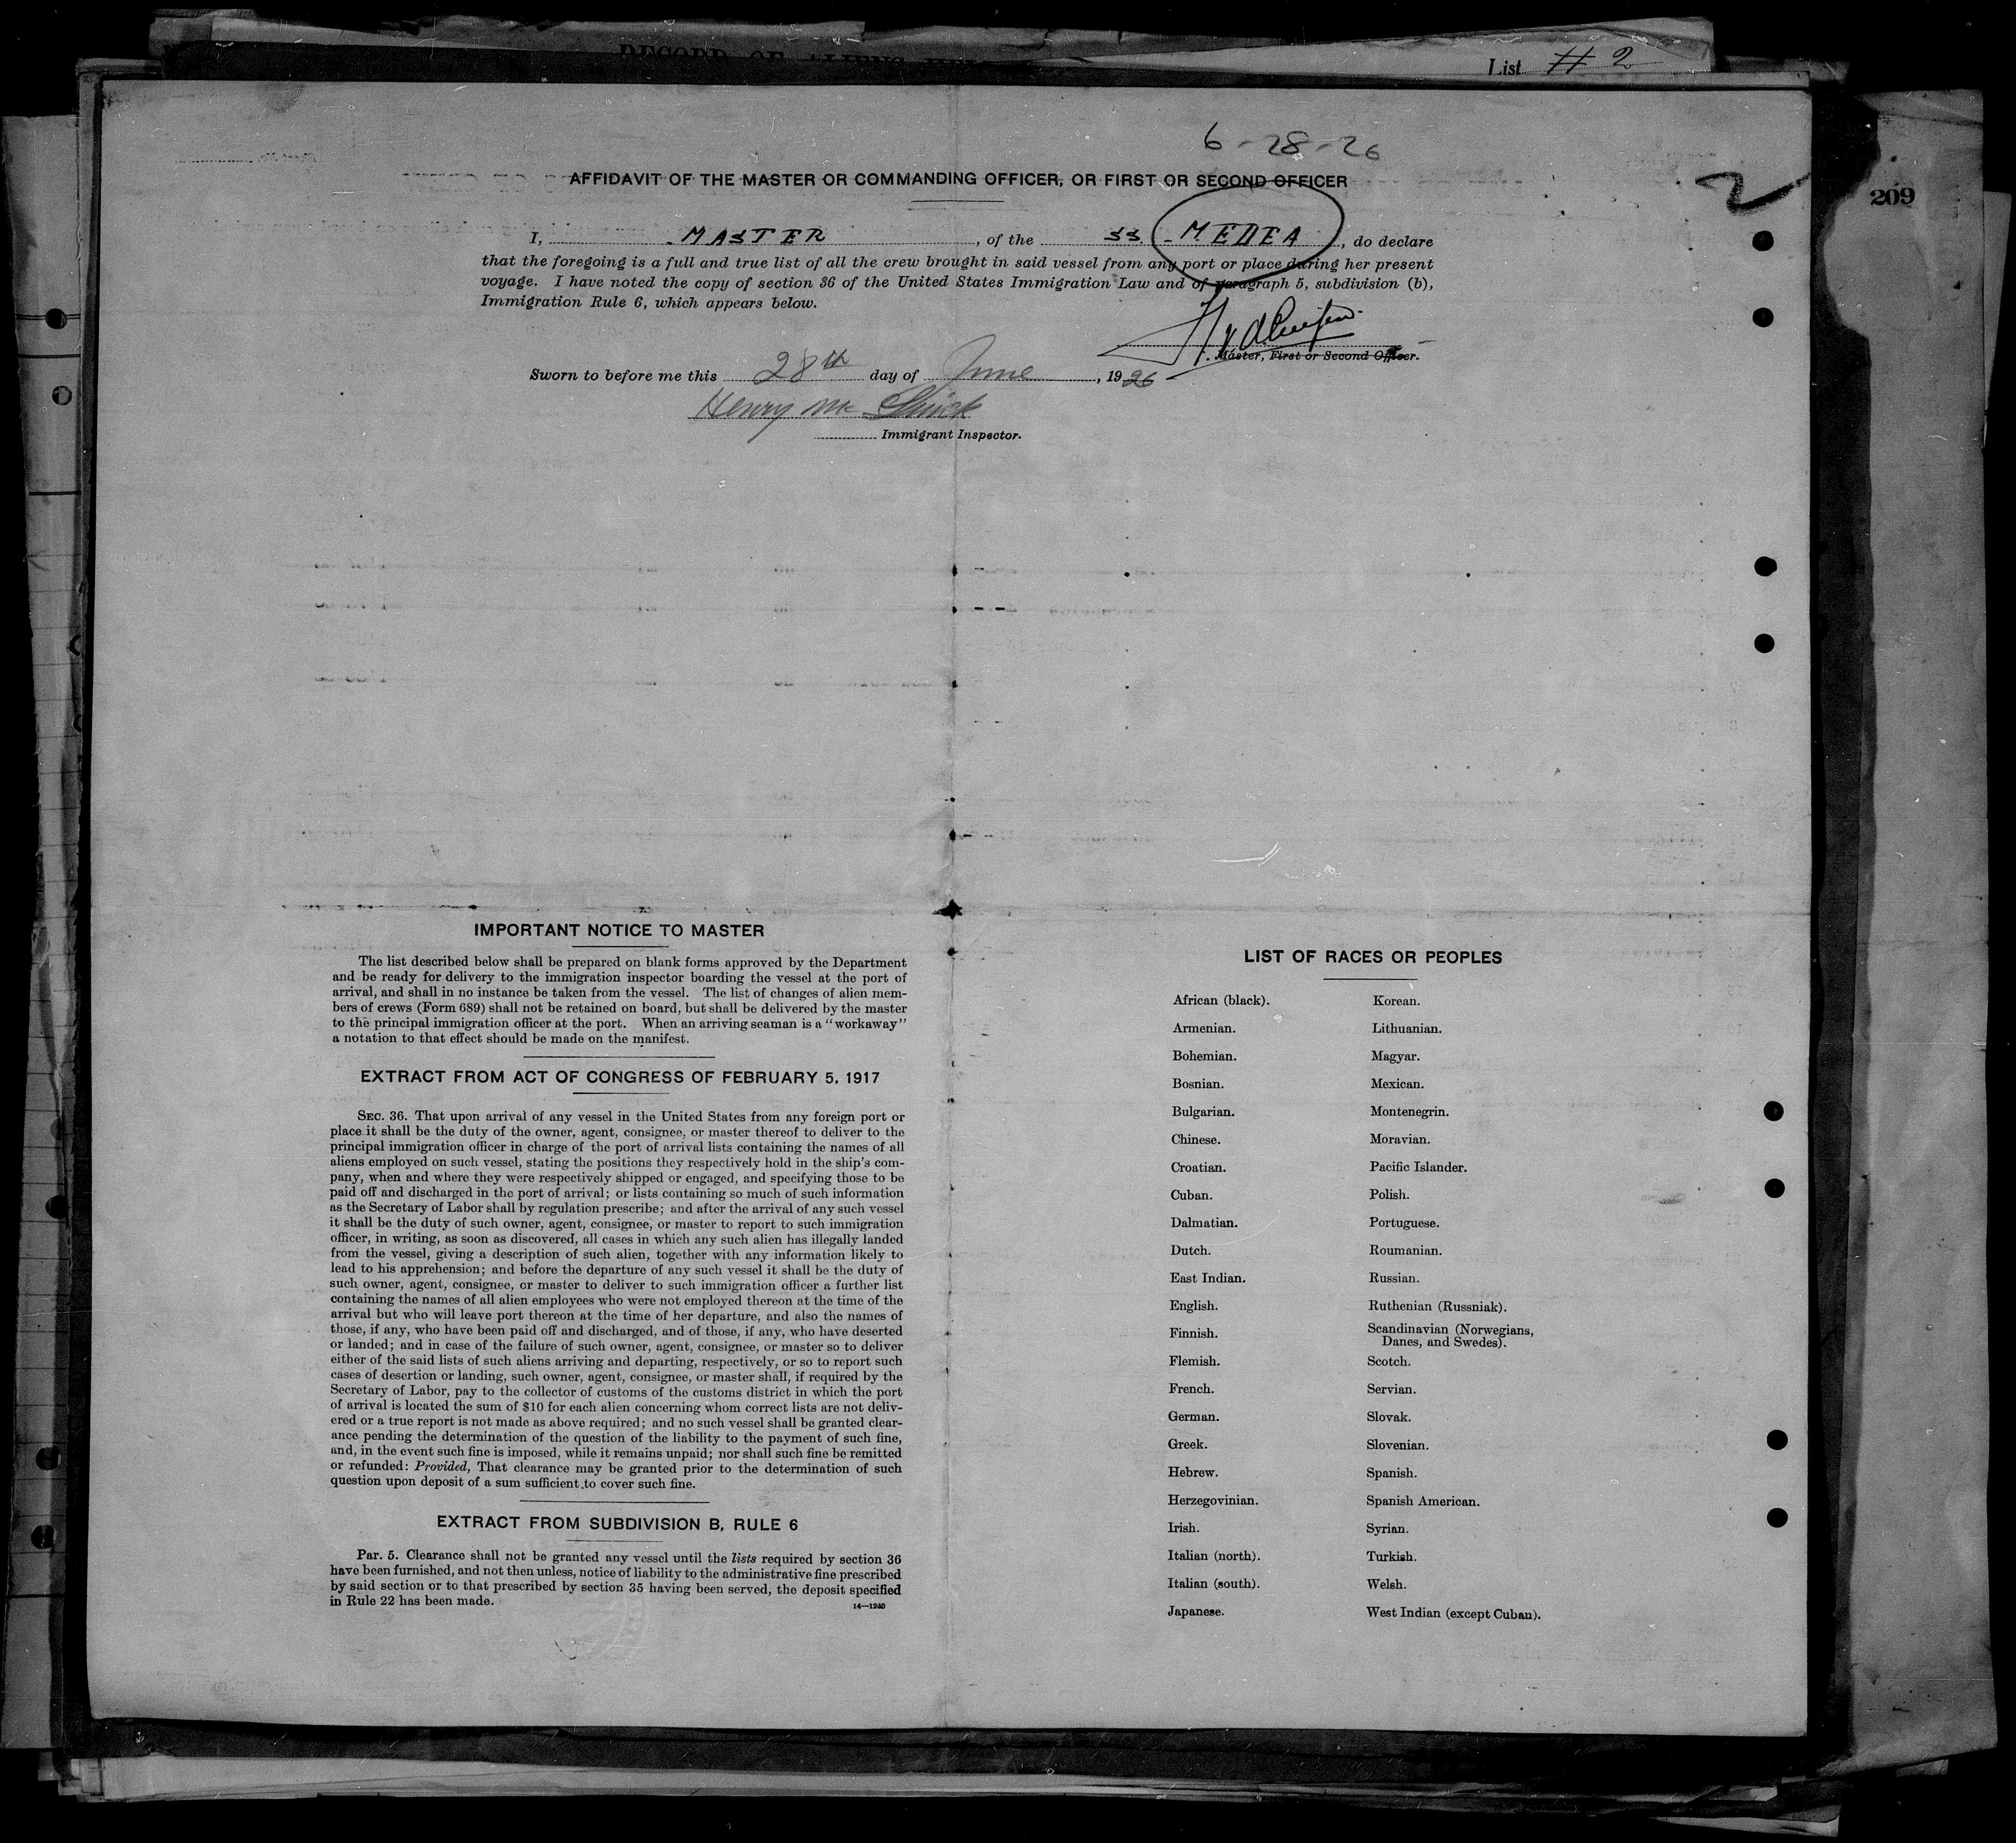 List # 2
6-28-26
AFFIDAVIT OF THE MASTER OR COMMANDING OFFICER, OR FIRST OR SECOND OFFICER
2
209
I, MASTER, of the SS. MEDEA, do declare
that the foregoing is a full and true list of all the crew brought in said vessel from any port or place during her present
voyage. I have noted the copy of section 36 of the United States Immigration Law and of paragraph 5, subdivision (b),
Immigration Rule 6, which appears below.
Master, First or Second Officer.
Sworn to before me this 28th day of June, 1926
Henry Mc
Immigrant Inspector.
IMPORTANT NOTICE TO MASTER
The list described below shall be prepared on blank forms approved by the Department
and be ready for delivery to the immigration inspector boarding the vessel at the port of
arrival, and shall in no instance be taken from the vessel. The list of changes of alien mem-
bers of crews (Form 689) shall not be retained on board, but shall be delivered by the master
to the principal immigration officer at the port. When an arriving seaman is a "workaway"
a notation to that effect should be made on the manifest.
EXTRACT FROM ACT OF CONGRESS OF FEBRUARY 5, 1917
SEC. 36. That upon arrival of any vessel in the United States from any foreign port or
place it shall be the duty of the owner, agent, consignee, or master thereof to deliver to the
principal immigration officer in charge of the port of arrival lists containing the names of all
aliens employed on such vessel, stating the positions they respectively hold in the ship's com-
pany, when and where they were respectively shipped or engaged, and specifying those to be
paid off and discharged in the port of arrival; or lists containing so much of such information
as the Secretary of Labor shall by regulation prescribe; and after the arrival of any such vessel
it shall be the duty of such owner, agent, consignee, or master to report to such immigration
officer, in writing, as soon as discovered, all cases in which any such alien has illegally landed
from the vessel, giving a description of such alien, together with any information likely to
lead to his apprehension; and before the departure of any such vessel it shall be the duty of
such owner, agent, consignee, or master to deliver to such immigration officer a further list
containing the names of all alien employees who were not employed thereon at the time of the
arrival but who will leave port thereon at the time of her departure, and also the names of
those, if any, who have been paid off and discharged, and of those, if any, who have deserted
or landed; and in case of the failure of such owner, agent, consignee, or master so to deliver
either of the said lists of such aliens arriving and departing, respectively, or so to report such
cases of desertion or landing, such owner, agent, consignee, or master shall, if required by the
Secretary of Labor, pay to the collector of customs of the customs district in which the port
of arrival is located the sum of $10 for each alien concerning whom correct lists are not deliv-
ered or a true report is not made as above required; and no such vessel shall be granted clear-
ance pending the determination of the question of the liability to the payment of such fine,
and, in the event such fine is imposed, while it remains unpaid; nor shall such fine be remitted
or refunded: Provided, That clearance may be granted prior to the determination of such
question upon deposit of a sum sufficient to cover such fine.
EXTRACT FROM SUBDIVISION B, RULE 6
Par. 5. Clearance shall not be granted any vessel until the lists required by section 36
have been furnished, and not then unless, notice of liability to the administrative fine prescribed
by said section or to that prescribed by section 35 having been served, the deposit specified
in Rule 22 has been made.
14—1240
LIST OF RACES OR PEOPLES
African (black).
Armenian.
Bohemian.
Bosnian.
Bulgarian.
Chinese.
Croatian.
Cuban.
Dalmatian.
Dutch.
East Indian.
English.
Finnish.
Flemish.
French.
German.
Greek.
Hebrew.
Herzegovinian.
Irish.
Italian (north).
Italian (south).
Japanese.
Korean.
Lithuanian.
Magyar.
Mexican.
Montenegrin.
Moravian.
Pacific Islander.
Polish.
Portuguese.
Roumanian.
Russian.
Ruthenian (Russniak).
Scandinavian (Norwegians,
Danes, and Swedes).
Scotch.
Servian.
Slovak.
Slovenian.
Spanish.
Spanish American.
Syrian.
Turkish.
Welsh.
West Indian (except Cuban).